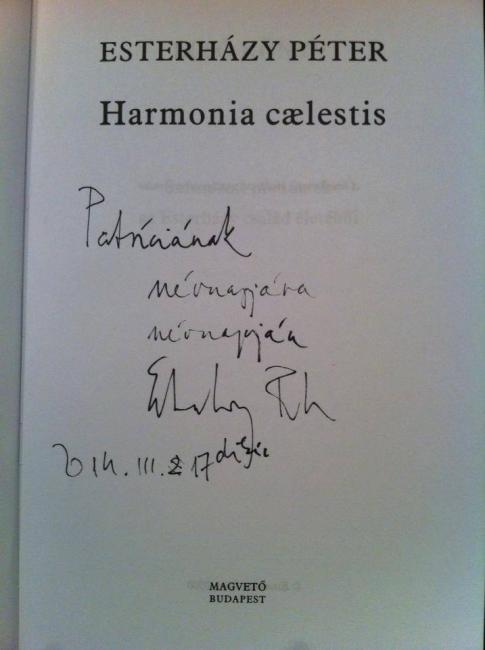 ESTERHÁZY PÉTER
Harmonia cælestis
Patríciának
névnapjára
névnapján
Esterházy Péter
2014. III. 17
MAGVETŐ
BUDAPEST